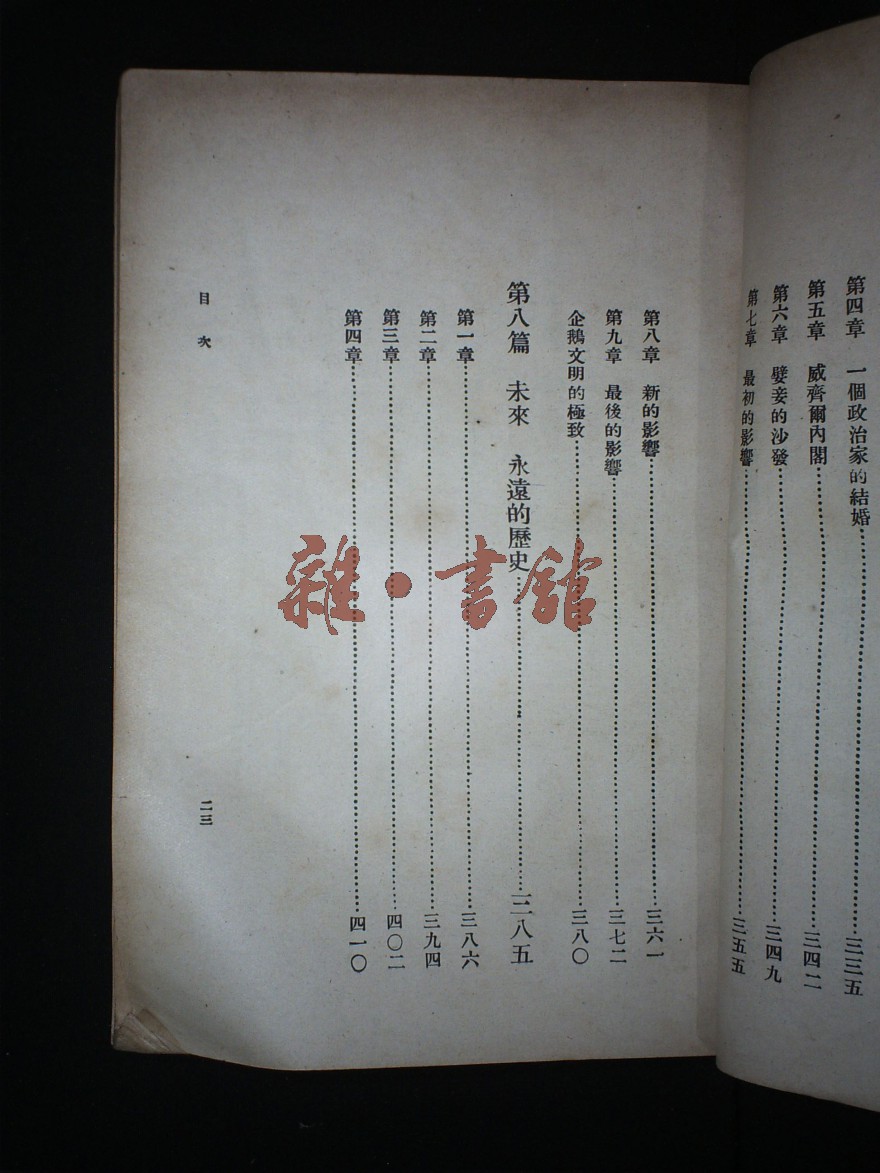 第四章　一個政治家的結婚……三三五
第五章　威齊爾內閣……三四二
第六章　嬖妾的沙發……三四九
第七章　最初的影響……三五五
第八章　新的影響……三六一
第九章　最後的影響……三七二
企鵝文明的極致……三八〇
第八篇　未來　永遠的歷史……三八五
第一章……三八六
第二章……三九四
第三章……四〇二
第四章……四一〇
目次
二三
雜·書館